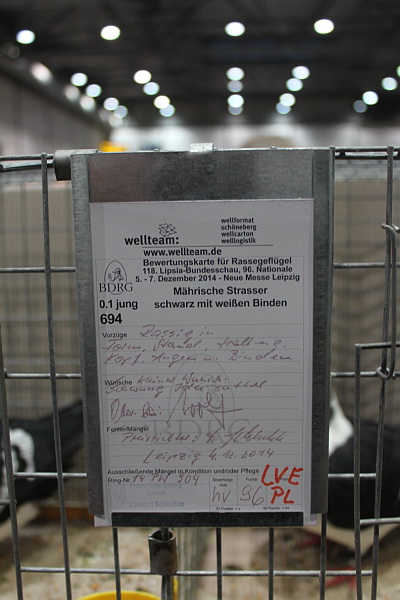 wellteam:
wellformat
schöneberg
wellcarton
welllogistik
www.wellteam.de
Bewertungskarte für Rassegeflügel
118. Lipsia-Bundesschau, 96. Nationale
5. - 7. Dezember 2014 - Neue Messe Leipzig
BDRG
Mährische Strasser
0.1 jung
schwarz mit weißen Binden
694
Vorzüge
Rassig in
Form, Stand,
Kopf, Augen u. Binden
Wünsche
BDRG
Fehler/Mängel
Leipzig 4.12.2014
Ausschließende Mängel in Kondition und/oder Pflege
Ring-Nr.
904
hv
Punkte
96
LVE
PL